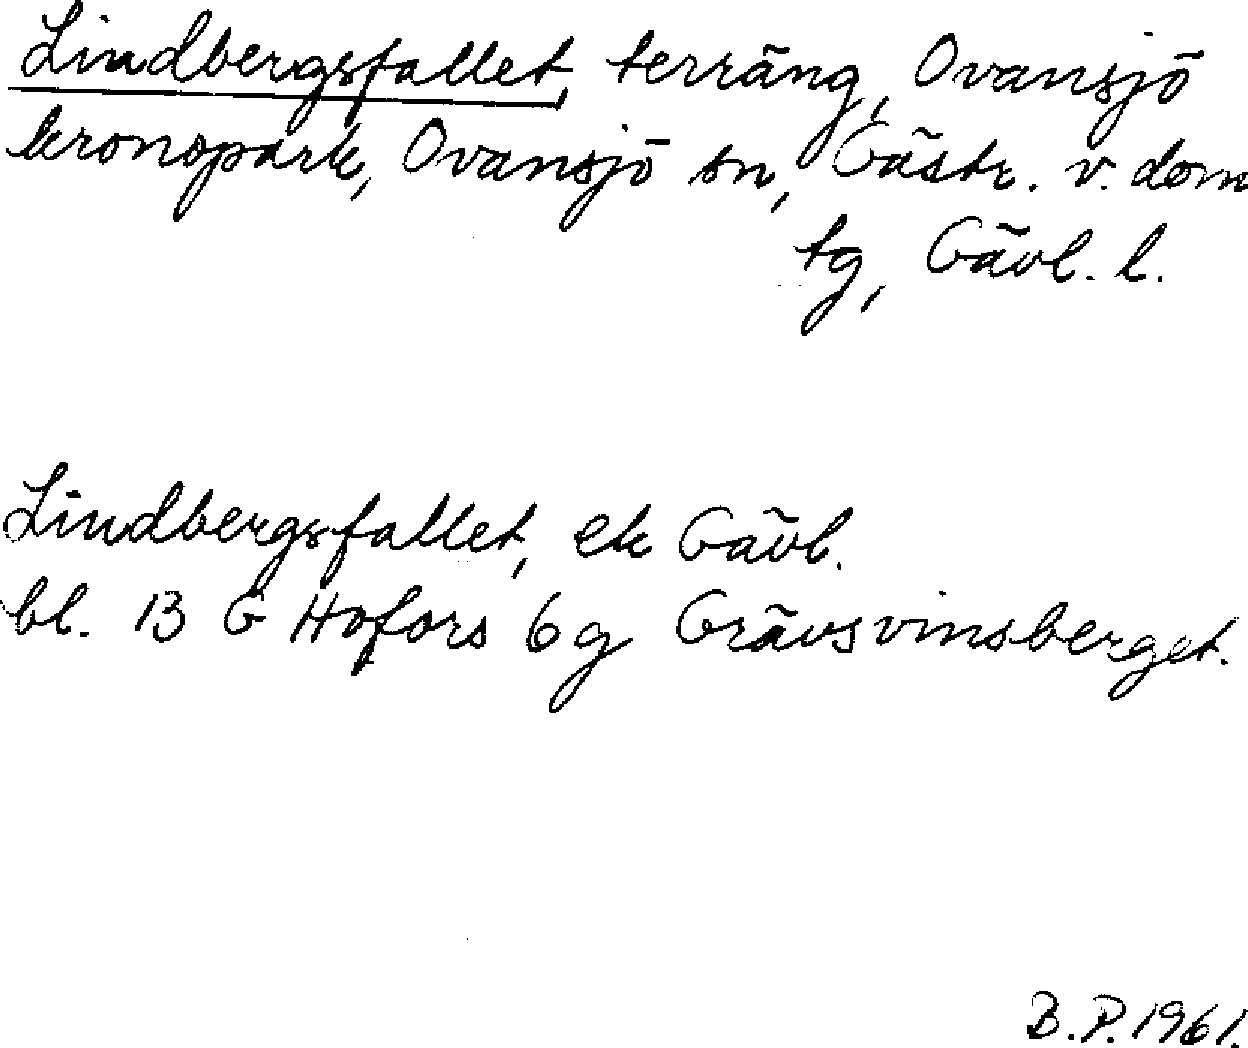 Lindbergsfallet, terräng, Ovansjö
kronopark, Ovansjö sn, Gästr. v. dom
tg, Gävl. l.
Lindbergsfallet, ek Gävl.
bl. 13 G Hofors 6g Grävsvinsberget.
B.P. 1961.